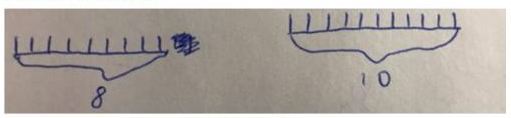 8
10